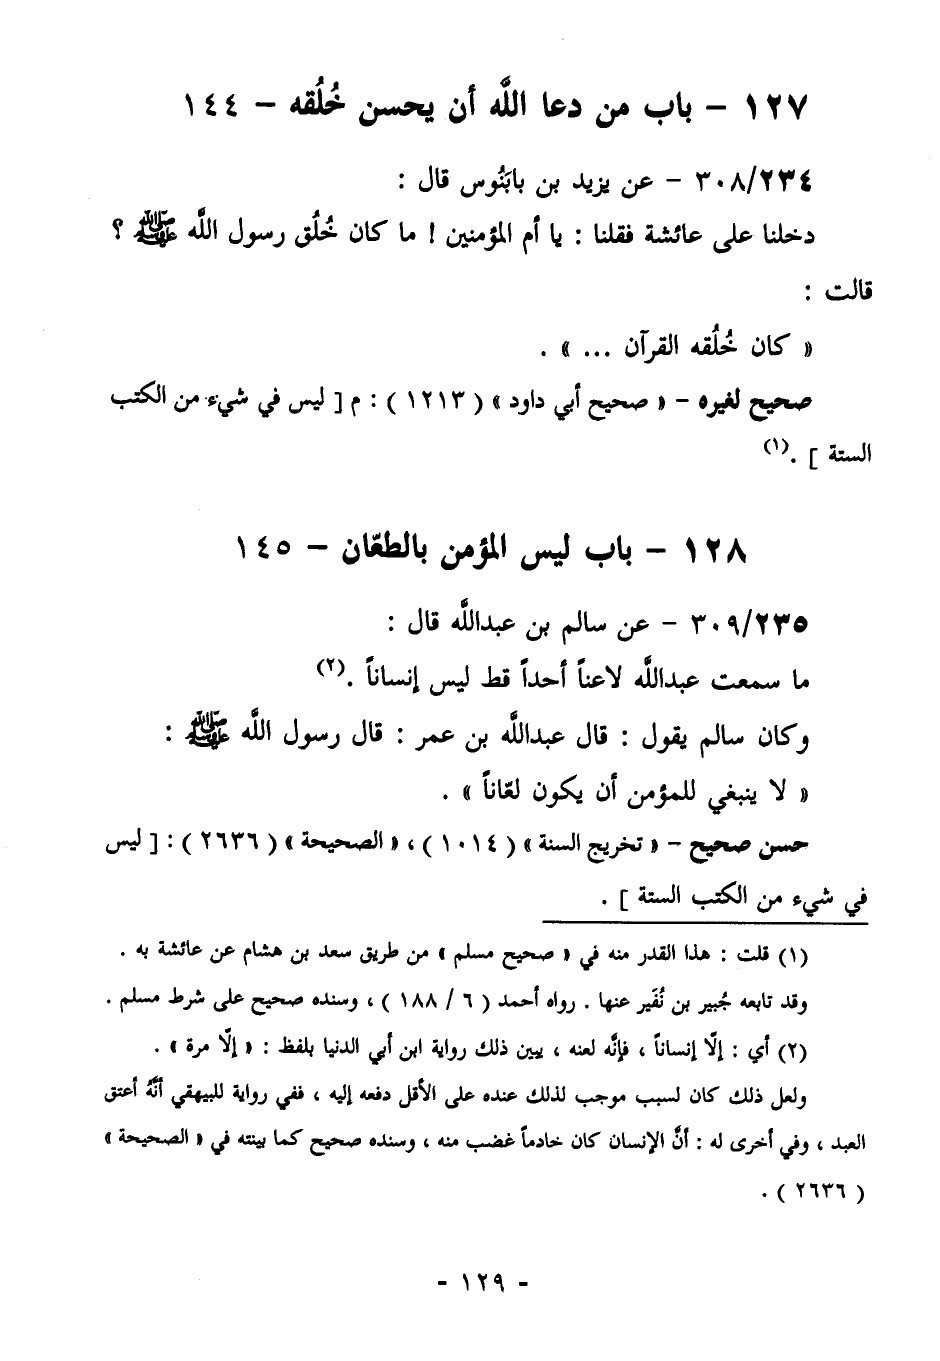 ١٢٧ – باب من دعا اللَّه أن يحسن خُلُقه – ١٤٤
٣٠٨/٢٣٤ – عن يزيد بن بابَنُوس قال :
دخلنا على عائشة فقلنا : يا أم المؤمنين ! ما كان خُلُق رسول اللَّه ﷺ ؟
قالت :
« كان خُلُقه القرآن ... » .
صحيح لغيره – « صحيح أبي داود » ( ١٢١٣ ) : م [ ليس في شيء من الكتب
الستة ] .(١)
١٢٨ – باب ليس المؤمن بالطعّان – ١٤٥
٣٠٩/٢٣٥ – عن سالم بن عبداللَّه قال :
ما سمعت عبداللَّه لاعناً أحداً قط ليس إنساناً .(٢)
وكان سالم يقول : قال عبداللَّه بن عمر : قال رسول اللَّه ﷺ :
« لا ينبغي للمؤمن أن يكون لعّاناً » .
حسن صحيح – « تخريج السنة » ( ١٠١٤ ) ، « الصحيحة » ( ٢٦٣٦ ) : [ ليس
في شيء من الكتب الستة ] .
(١) قلت : هذا القدر منه في « صحيح مسلم » من طريق سعد بن هشام عن عائشة به .
وقد تابعه جُبير بن نُفَير عنها . رواه أحمد ( ٦ / ١٨٨ ) ، وسنده صحيح على شرط مسلم .
(٢) أي : إلَّا إنساناً ، فإنَّه لعنه ، يبين ذلك رواية ابن أبي الدنيا بلفظ : « إلَّا مرة » .
ولعل ذلك كان لسبب موجب لذلك عنده على الأقل دفعه إليه ، ففي رواية للبيهقي أنَّهُ أعتق
العبد ، وفي أخرى له : أنَّ الإنسان كان خادماً غضب منه ، وسنده صحيح كما بينته في « الصحيحة »
( ٢٦٣٦ ) .
- ١٢٩ -